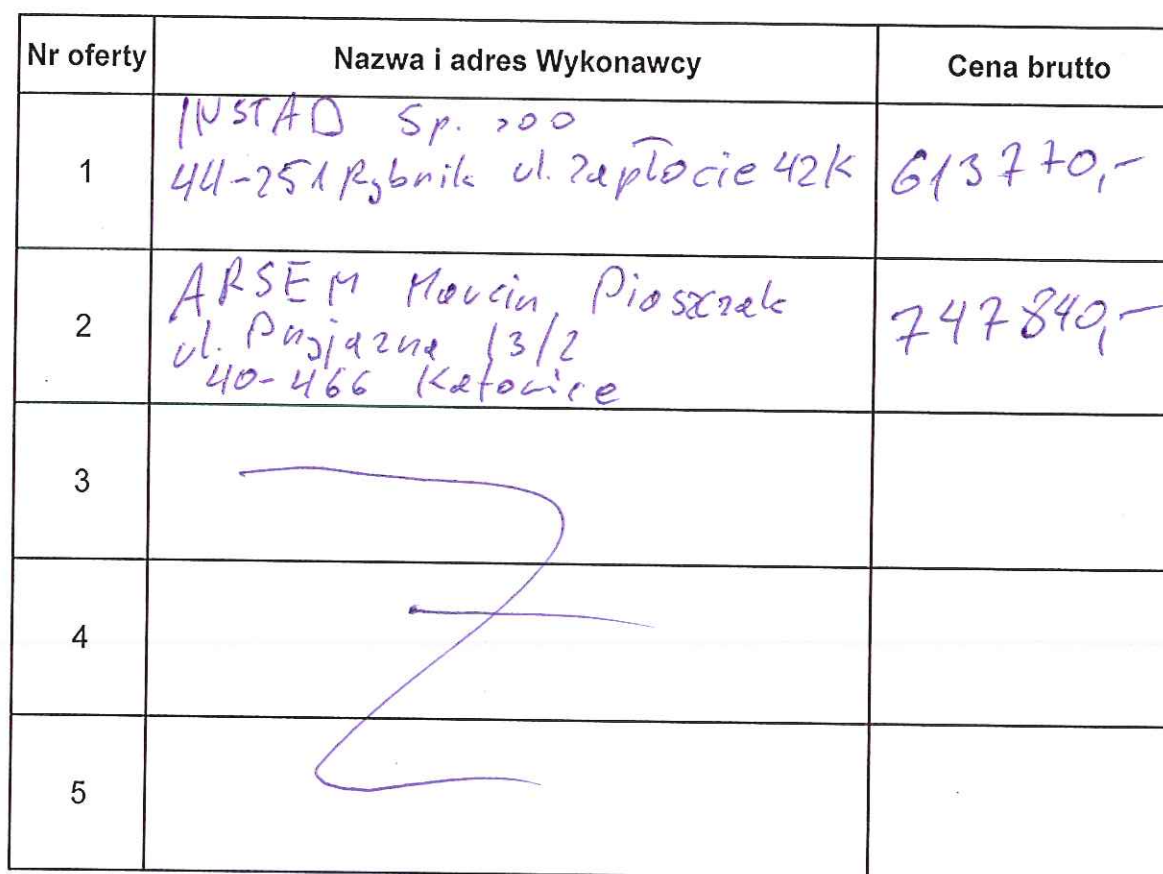 Nr oferty Nazwa i adres Wykonawcy Cena brutto
1 INSTAD Sp. zoo
44-251 Rybnik ul. Zapłocie 42K 613 770,-
2 ARSEM Marcin Pioszczak
ul. Przyjazna 13/2
40-466 Katowice 747 840,-
3
4
5